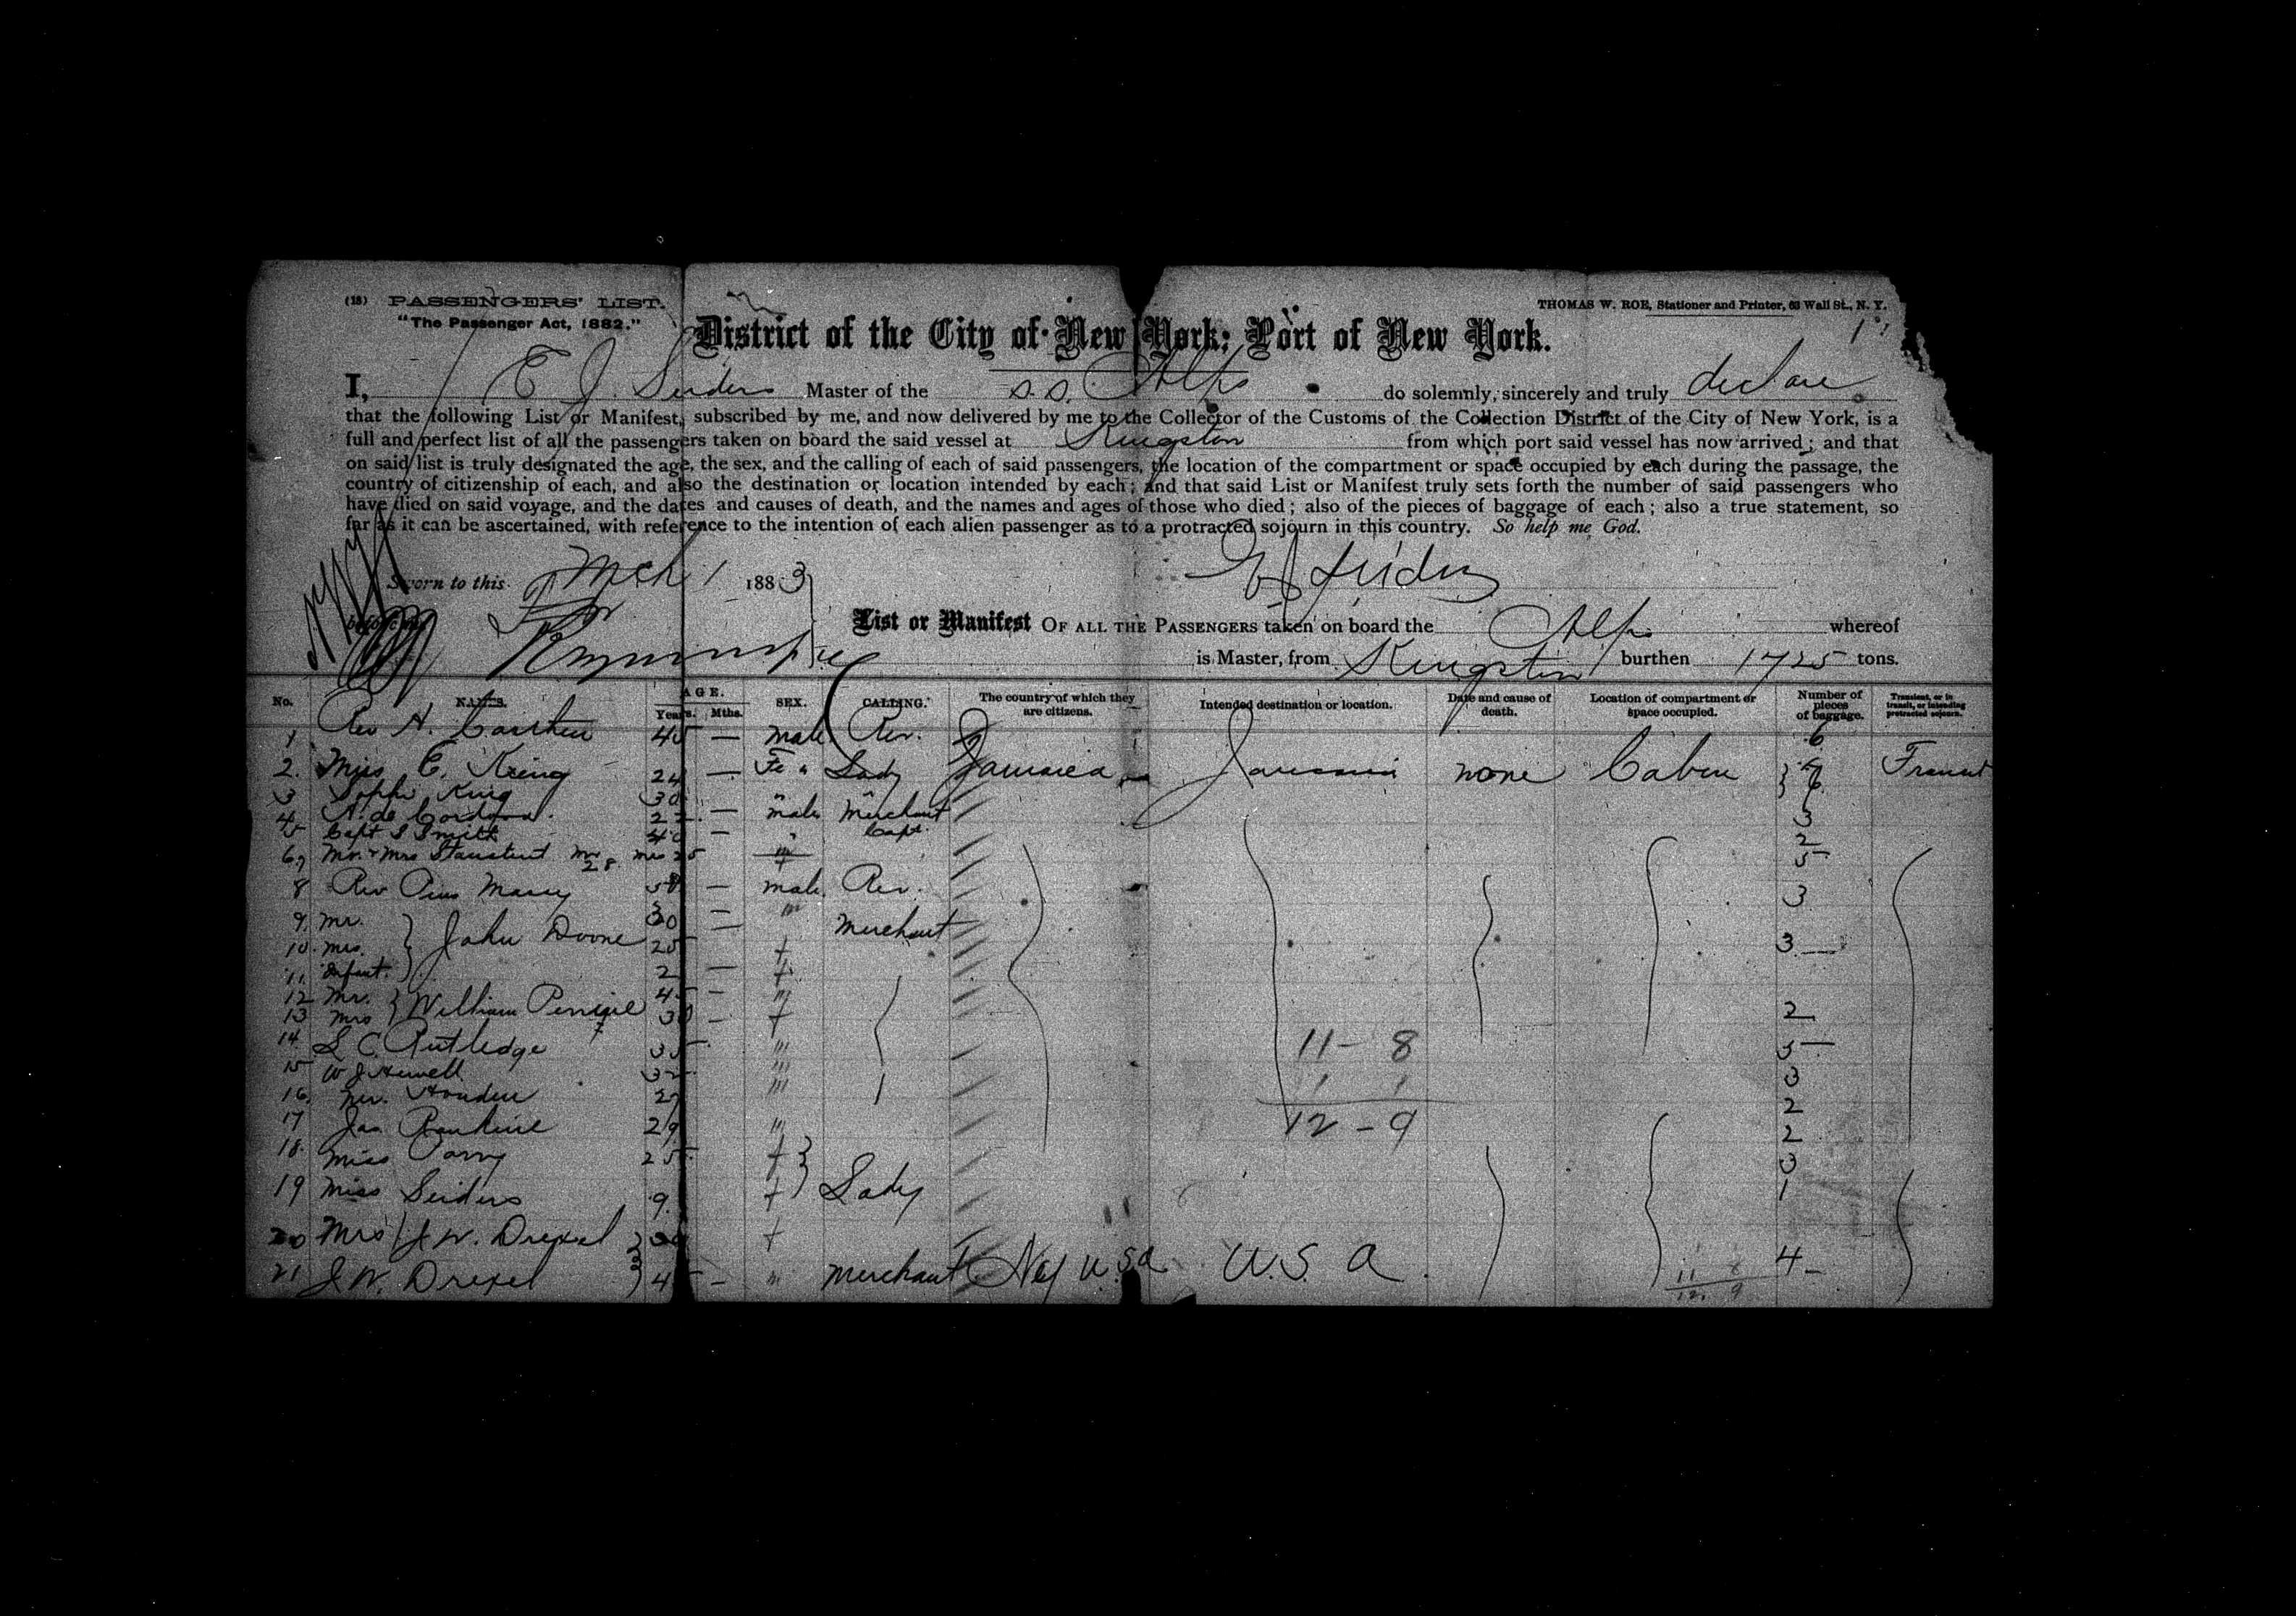 (13) PASSENGERS' LIST.
"The Passenger Act, 1882."
THOMAS W. ROE, Stationer and Printer, 63 Wall St., N. Y.
District of the City of New York: Port of New York.
I, E J. Seiders Master of the S.S. Alps do solemnly, sincerely and truly declare
that the following List or Manifest, subscribed by me, and now delivered by me to the Collector of the Customs of the Collection District of the City of New York, is a
full and perfect list of all the passengers taken on board the said vessel at Kingston from which port said vessel has now arrived; and that
on said list is truly designated the age, the sex, and the calling of each of said passengers, the location of the compartment or space occupied by each during the passage, the
country of citizenship of each, and also the destination or location intended by each; and that said List or Manifest truly sets forth the number of said passengers who
have died on said voyage, and the dates and causes of death, and the names and ages of those who died; also of the pieces of baggage of each; also a true statement, so
far as it can be ascertained, with reference to the intention of each alien passenger as to a protracted sojourn in this country. So help me God.
Sworn to this Mch 1 1883
before me
List or Manifest OF ALL THE PASSENGERS taken on board the Alps whereof
is Master, from Kingston burthen 1725 tons.
No. NAMES. AGE. Years. Mths. SEX. CALLING. The country of which they are citizens. Intended destination or location. Date and cause of death. Location of compartment or space occupied. Number of pieces of baggage. Transient, or in transit, or intending protracted sojourn.
1 Rev H. 45 — male Rev. 6
2. Miss C. King 24 — Fe " Lady Jamaica none Cabin 6 Transit
3 King 30
4 A. de Cordova. — male Merchant 3
5 Capt S Smith 40 — " Capt. 2
6,7 Mr. + Mrs mr 28 mrs 25 5
8 Rev Pius 58 — male Rev. 3
9. Mr. } John Doone 30 — m merchant
10. mrs. 25 f 3 —
11. Infant. 2 — f
12 Mr. } William 45 — m
13 Mrs 30 — f 2
14. L C. Rutledge 35 m 5 — 11 - 8
15 W J 32 m 3 1 1
16. Mr. 27 m 2
17 Jas Rankine 29 m 2 12 - 9
18. Miss 25 f 3
19 Miss Seiders 9. f Lady 1
20 Mrs J. W. Drexel f
21 J. W. Drexel 45 — m merchant U.S.A U.S. A. 4 —
11 8
12. 9